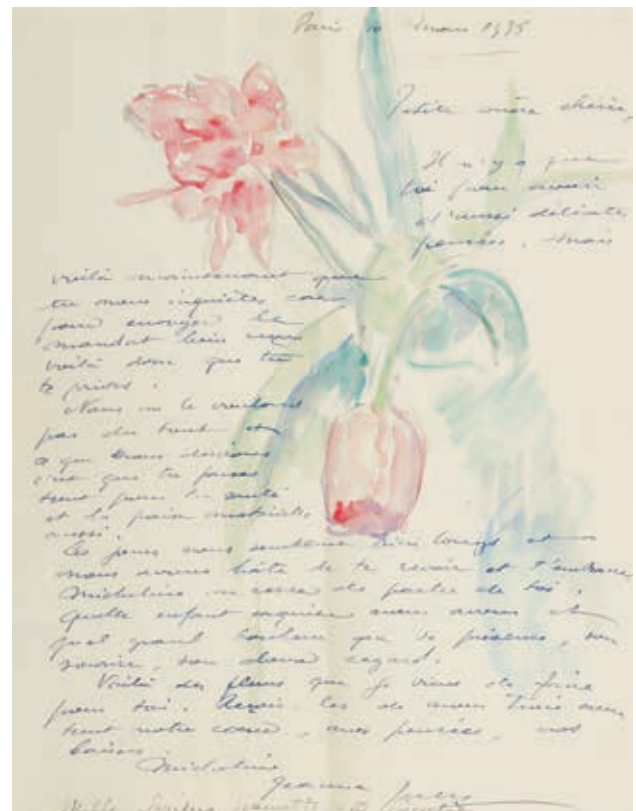 Paris 10 mars 1935
Petite mère chérie,
Il n'y a que
toi pour avoir
d'aussi délicates
pensées. Mais
voilà maintenant que
tu nous inquiètes car
pour envoyer le
mandat bien
voilà donc que tu
te prives.
Nous ne le voulons
pas du tout et
ce que nous désirons
c'est que tu fasses
tout pour ta santé
et la paix matérielle
aussi.
Les jours nous semblent bien longs et
nous avons hâte de te revoir et t'embrasser
Micheline ne cesse de parler de toi.
Quelle enfant exquise nous avons et
quel grand bonheur que sa présence, son
sourire, son doux regard.
Voilà des fleurs que je viens de faire
pour toi. Reçois les de nous trois avec
tout notre cœur, nos pensées, nos
baisers
Micheline
Jeanne Jules
Mille